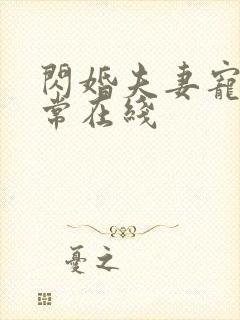 閃婚夫妻寵
常在綫
憂之